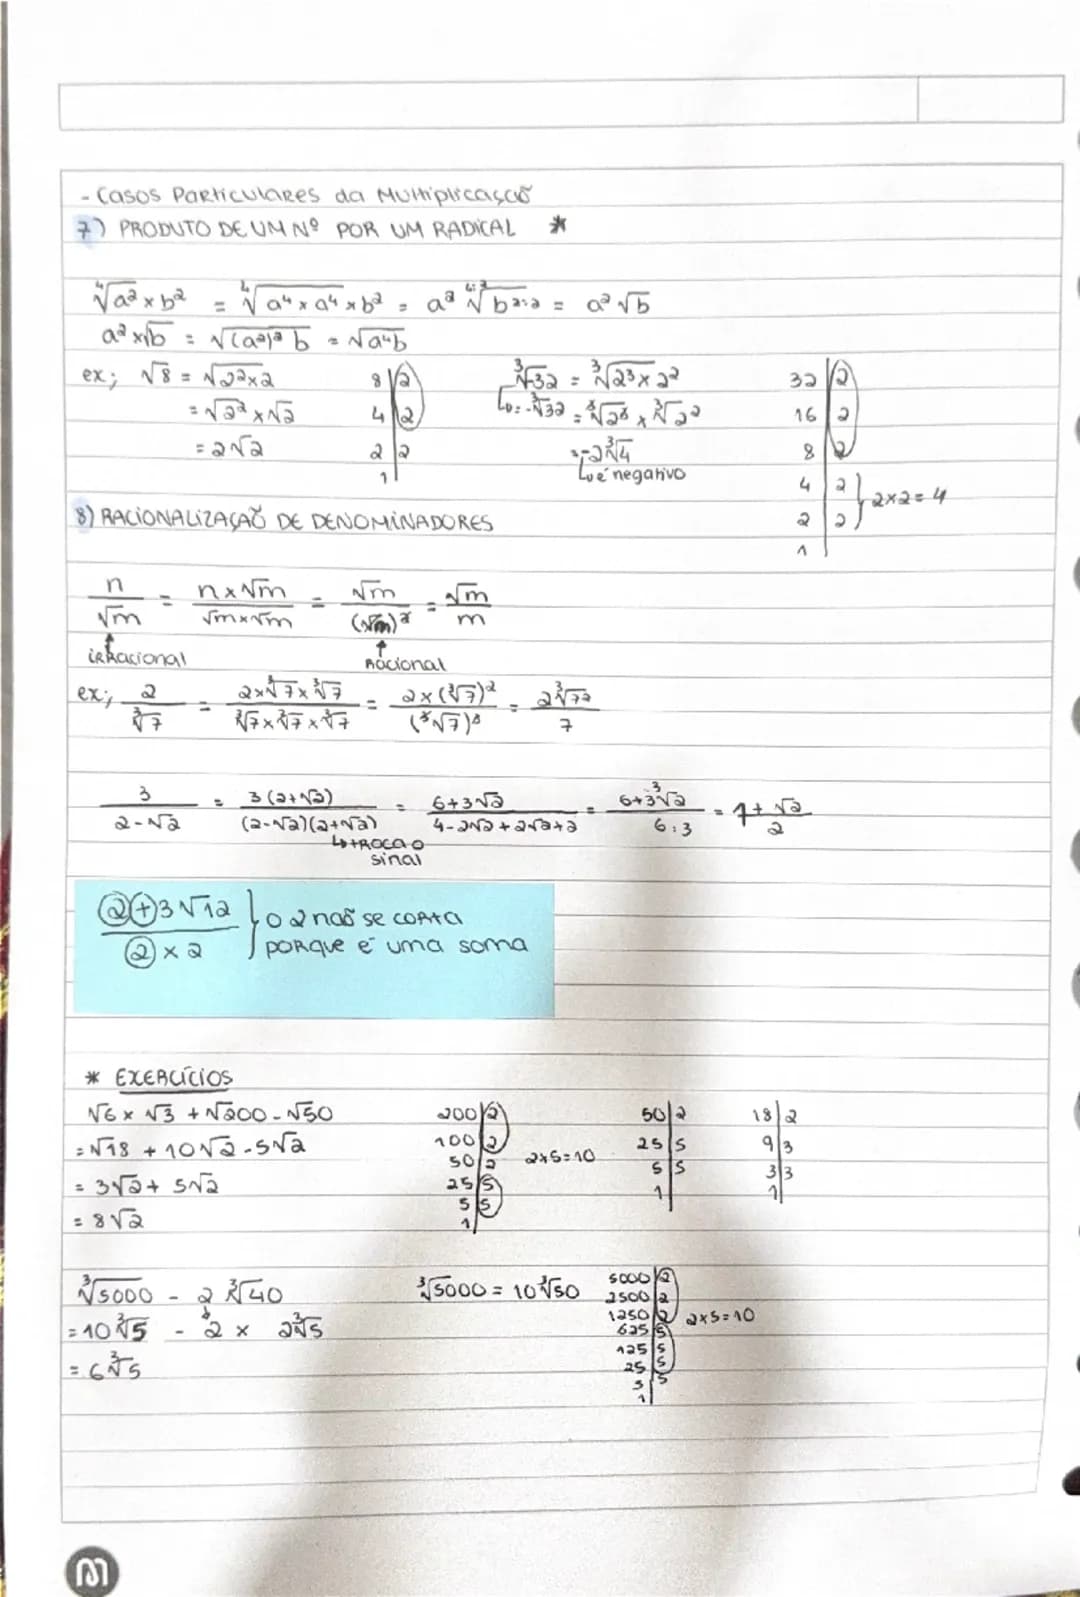 - Casos Particulares da Multiplicação
7) PRODUTO DE UM Nº POR UM RADICAL *
⁴√a² x b² = ⁴√a⁴ x a⁴ x b² = a² ⁴:²√b²:² = a²√b
a² x √b = √(a²)² b = √a⁴b
ex; √8 = √2²x2
= √2² x √2
= 2√2
8 | 2
4 | 2
2 | 2
1
³√-32 = ³√2³ x 2²
↳ = -³√32 = ³√2³ x ³√2²
= -2³√4
↳ é negativo
32 | 2
16 | 2
8 | 2
4 | 2
2 | 2 } 2x2=4
1
8) RACIONALIZAÇAÕ DE DENOMINADORES
n/√m = n x √m / √m x √m = √m / (√m)² = √m / m
↑ irracional
↑ racional
ex; 2/³√7 = 2x³√7 x ³√7 / ³√7 x ³√7 x ³√7 = 2 x (³√7)² / (³√7)³ = 2³√7² / 7
3 / 2-√2 = 3(2+√2) / (2-√2)(2+√2) = 6+3√2 / 4-2√2+2√2+2 = 6+3√2:3 / 6:3 = 1+√2 / 2
↳ troca o
sinal
2+3√12 / 2 x 2 } o 2 naõ se corta
porque é uma soma
* EXERCÍCIOS
√6 x √3 + √200 - √50
= √18 + 10√2 - 5√2
= 3√2 + 5√2
= 8√2
200 | 2
100 | 2
50 | 2
25 | 5
5 | 5
1
2x5=10
50 | 2
25 | 5
5 | 5
1
18 | 2
9 | 3
3 | 3
1
³√5000 - 2 ³√40
= 10³√5 - 2 x 2³√5
= 6³√5
³√5000 = 10³√50
5000 | 2
2500 | 2
1250 | 2
625 | 5
125 | 5
25 | 5
5 | 5
1
2x5=10